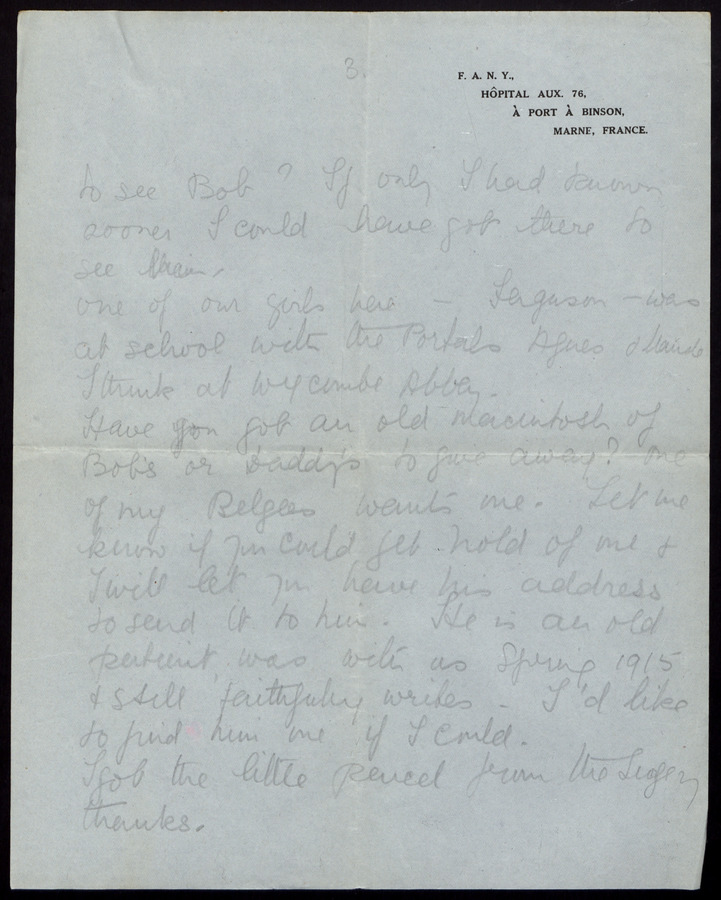 3.
F. A. N. Y.,
HÔPITAL AUX. 76,
À PORT À BINSON,
MARNE, FRANCE.
to see Bob? If only I had known
sooner I could have got there to
see him.
one of our girls here – Ferguson – was
at school with the Portals Agnes &
I think at Wycombe Abbey.
Have you got an old macintosh of
Bob's or Daddy's to give away? One
of my Belges wants one. Let me
know if you could get hold of one &
I will let you have his address
to send it to him. He is an old
patient, was with us Spring 1915
& still faithfully writes – I'd like
to find him one if I could.
I got the little pencil from the
thanks.